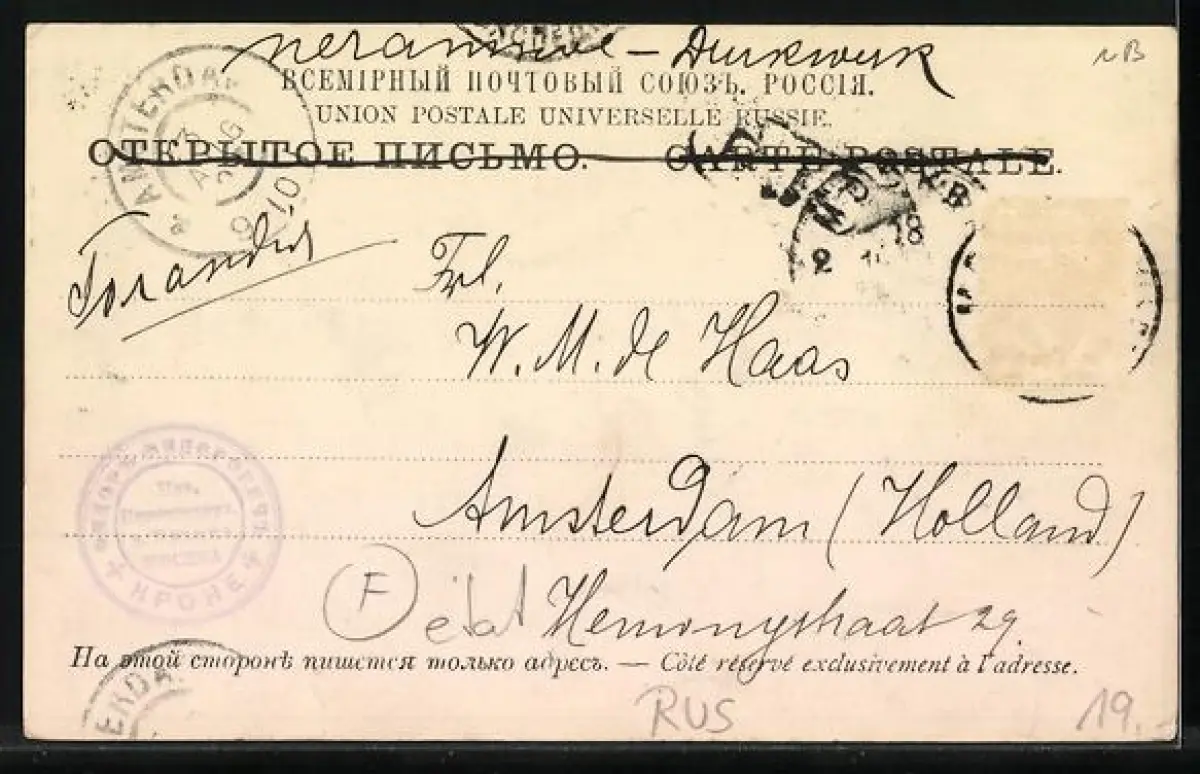 ВСЕМІРНЫЙ ПОЧТОВЫЙ СОЮЗЪ. РОССІЯ.
UNION POSTALE UNIVERSELLE RUSSIE.
ОТКРЫТОЕ ПИСЬМО. CARTE POSTALE.
AMSTERDAM
Frl.
W. M. de Haas
Amsterdam (Holland)
КРОНЕ
F
etat Hemonystraat 29.
На этой сторонѣ пишется только адресъ. — Côté réservé exclusivement à l'adresse.
RUS
19.-